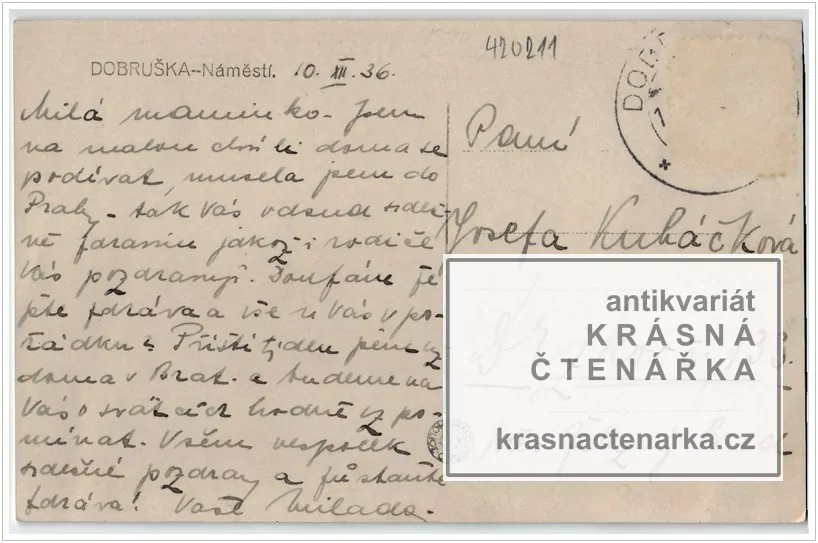 420211
DOBRUŠKA--Náměstí. 10. XII. 36.
DOB
Milá maminko. Jsem
na malou chvíli doma se
podívat, musela jsem do
Prahy – tak Vás odsud srdeč-
ně zdravím jakož i rodiče
Vás pozdravují. Doufám že
jste zdráva a vše u Vás v po-
řádku? Příští týden jsem už
doma v Brat. a budeme na
Vás o svátcích hodně vzpo-
mínat. Všem vespolek
srdečné pozdravy a zůstaňte
zdráva! Vaše Milada.
Paní
Josefa Kubáčková
antikvariát
KRÁSNÁ
ČTENÁŘKA
krasnactenarka.cz